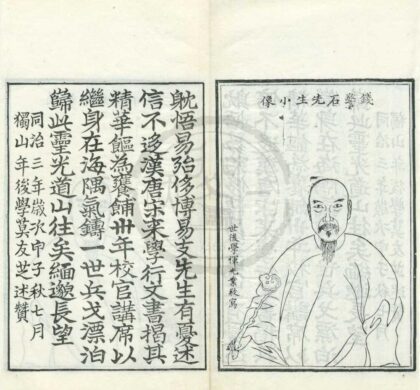 錢警石先生小像
世後學惲光業敬寫
躭悟易殆侈博易支先生有憂述
信不迻漢唐宋來學行文書揭其
精華饇為饔餔卅年校官講席以
繼身在海隅氣鑄一世兵戈漂泊
歸此靈光道山往矣緬邈長望
同治三年歲次甲子秋七月
獨山年後學莫友芝述贊